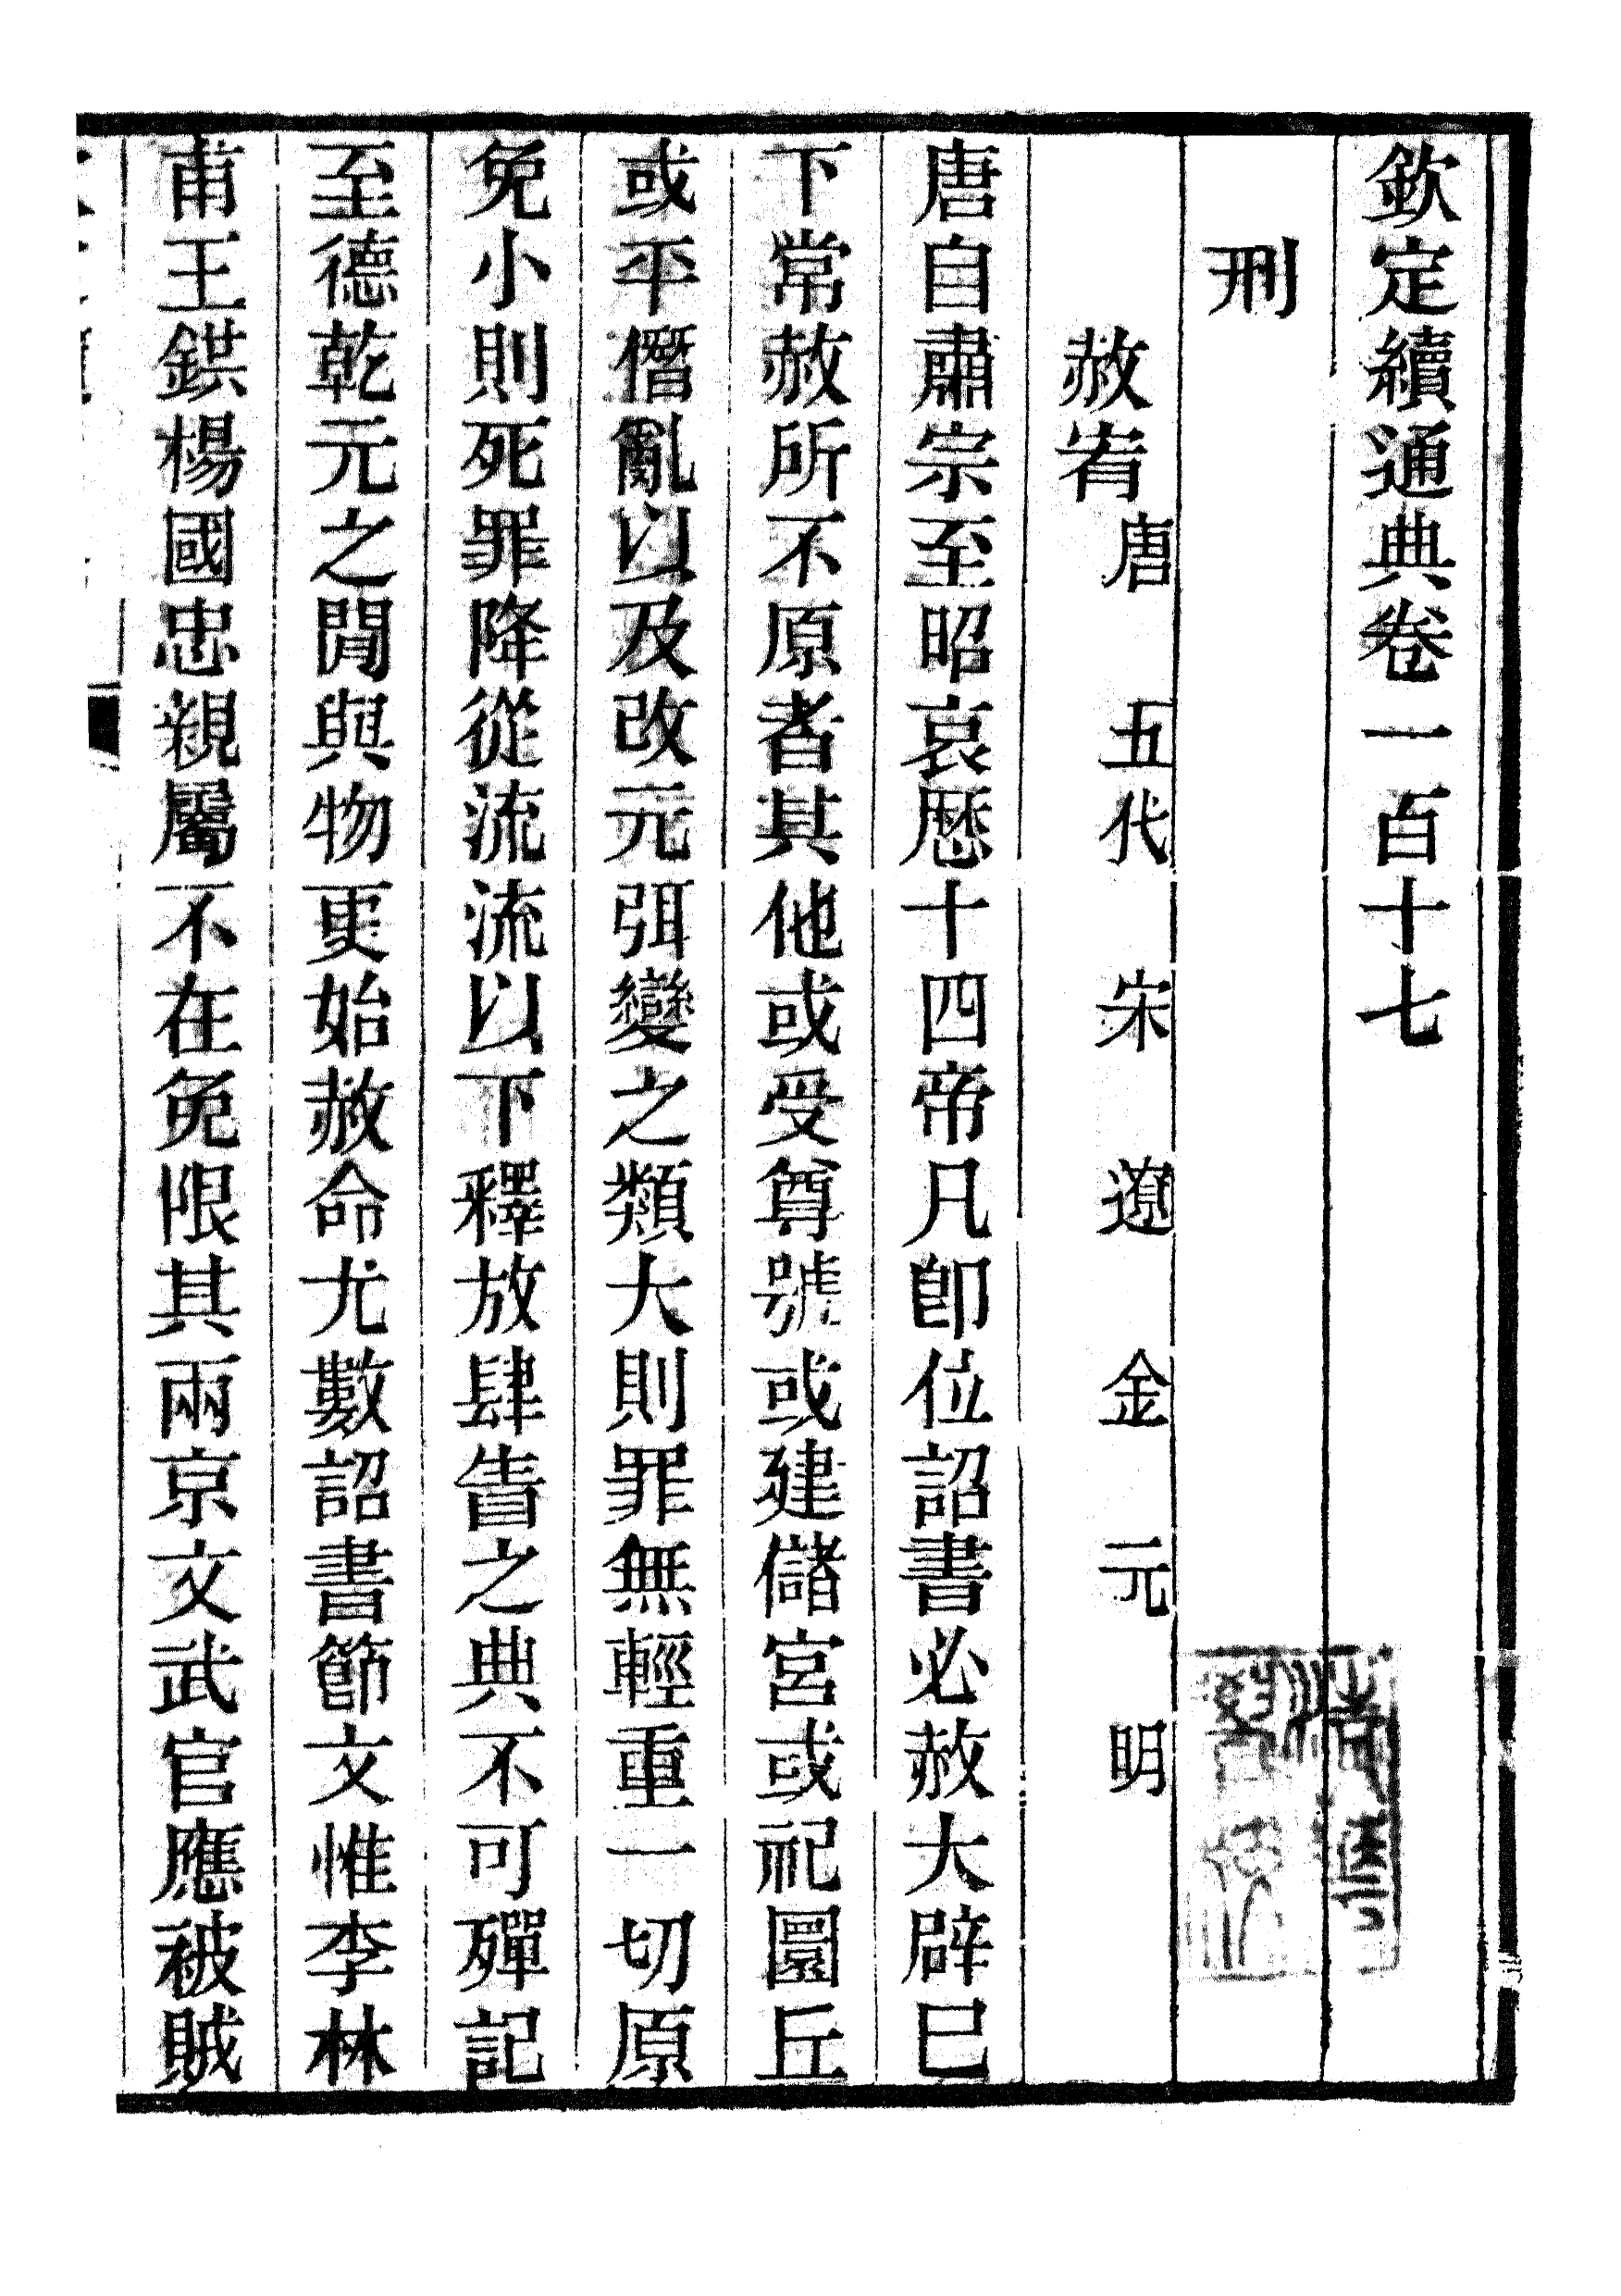 欽定續通典卷一百十七
刑
赦宥唐 五代 宋 遼 金 元 明
唐自肅宗至昭哀歷十四帝凡卽位詔書必赦大辟巳
下常赦所不原者其他或受尊號或建儲宮或祀圜丘
或平僭亂以及改元弭變之類大則罪無輕重一切原
免小則死罪降從流流以下釋放肆眚之典不可殫記
至德乾元之閒與物更始赦命尤數詔書節文惟李林
甫王鉷楊國忠親屬不在免限其兩京文武官應被賊